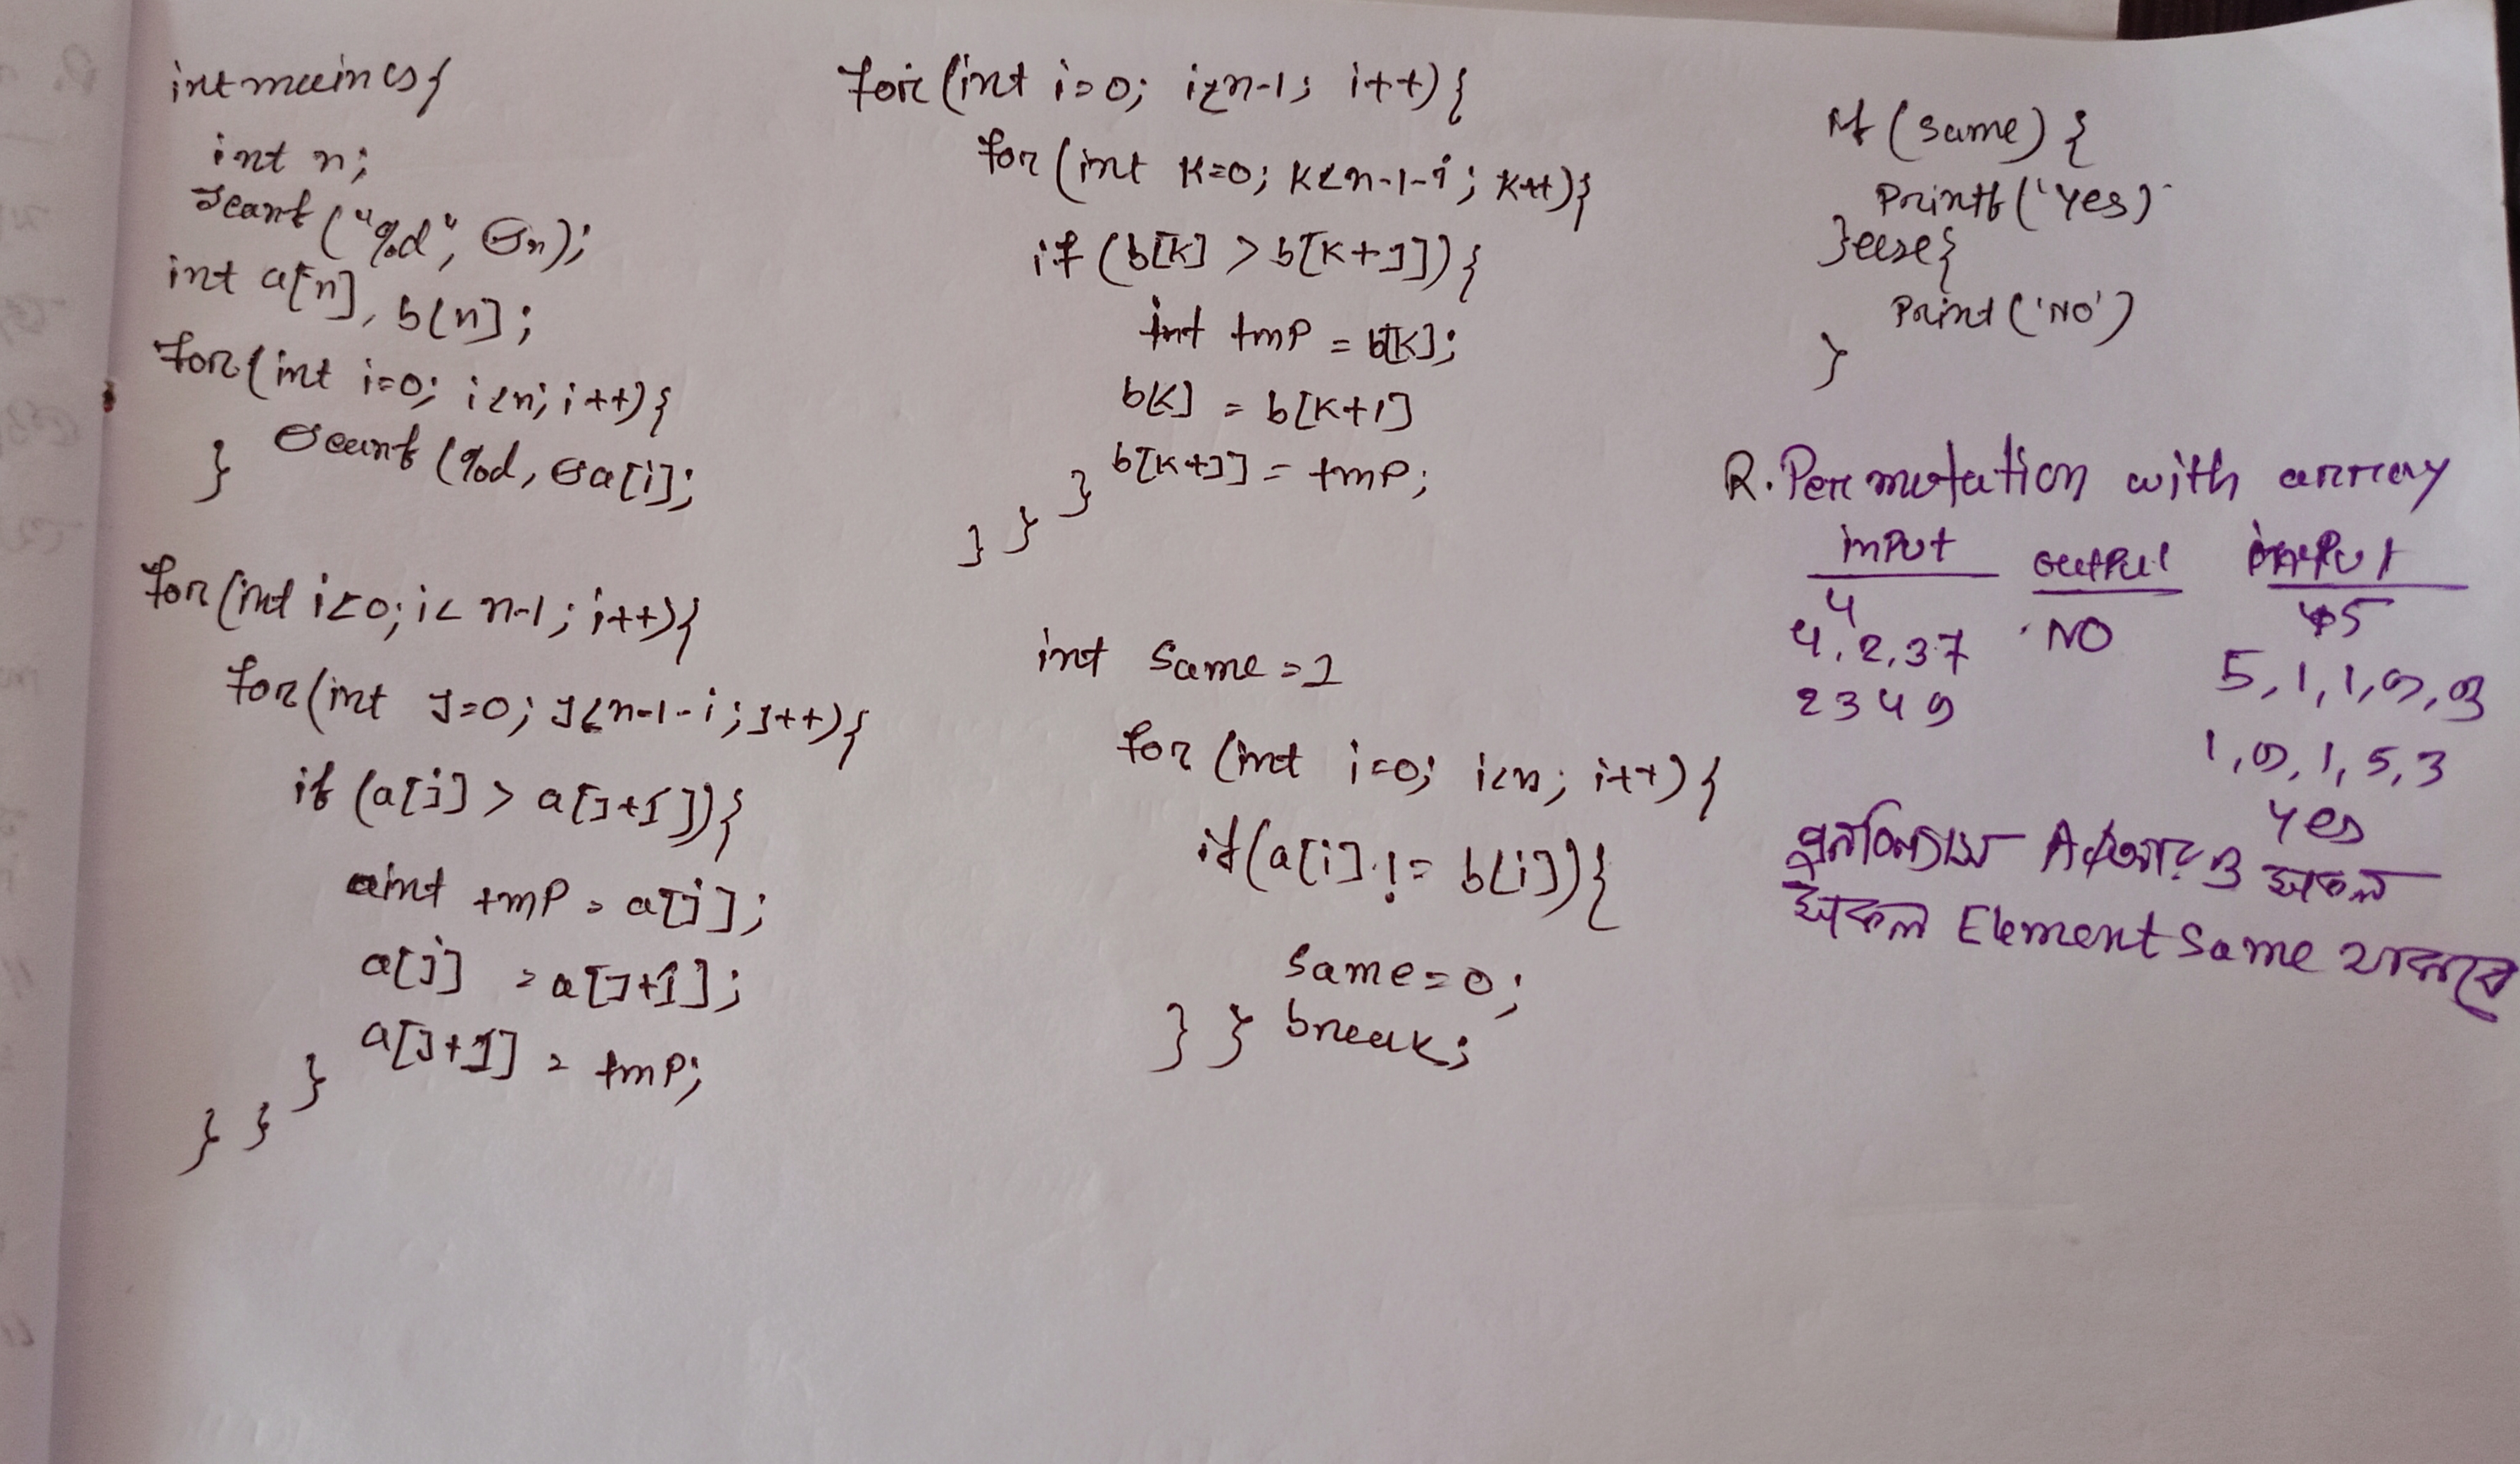 int main() {
int n;
scanf ("%d", &n);
int a[n], b[n];
for (int i=0; i<n; i++) {
scanf (%d, &a[i];
}
for (int i=0; i< n-1; i++) {
for (int j=0; j<n-1-i; j++) {
if (a[j] > a[j+1]) {
int tmp = a[j];
a[j] = a[j+1];
a[j+1] = tmp;
}
} }
for (int i=0; i<n-1; i++) {
for (int k=0; k<n-1-i; k++) {
if (b[k] > b[k+1]) {
int tmp = b[k];
b[k] = b[k+1]
b[k+1] = tmp;
}
} }
int same =1
for (int i=0; i<n; i++) {
if (a[i] != b[i]) {
same=0;
} } break;
if (same) {
Printf ('Yes)
} else {
Print ('NO')
}
R. Permutation with array
input output input
4 5
4, 2, 3 7 NO 5, 1, 1, 9, 3
2 3 4 9
1, 9, 1, 5, 3
Yes
ও সকল
সকল Element Same থাকবে